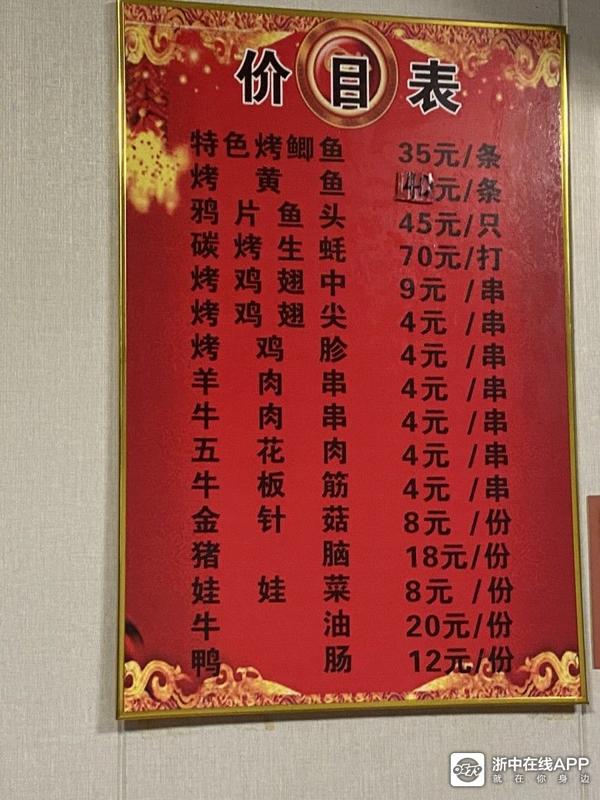 价目表
特色烤鲫鱼 35元/条
烤黄鱼 40元/条
鸦片鱼头 45元/只
碳烤生蚝 70元/打
烤鸡翅中 9元/串
烤鸡翅尖 4元/串
烤鸡胗 4元/串
羊肉串 4元/串
牛肉串 4元/串
五花肉 4元/串
牛板筋 4元/串
金针菇 8元/份
猪脑 18元/份
娃娃菜 8元/份
牛油 20元/份
鸭肠 12元/份
浙中在线APP
就在你身边